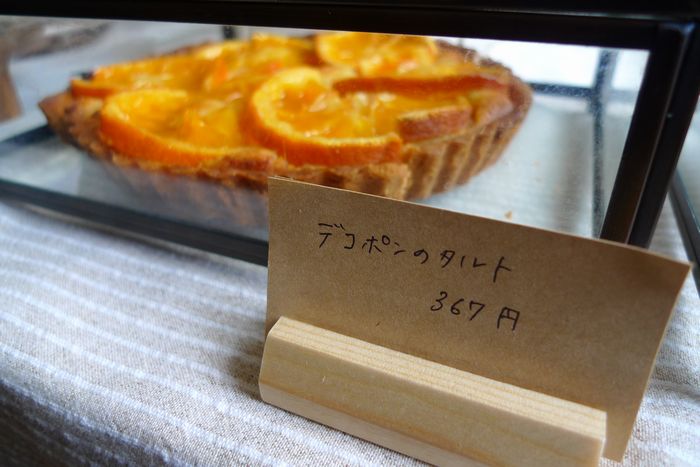 デコポンのタルト
367円